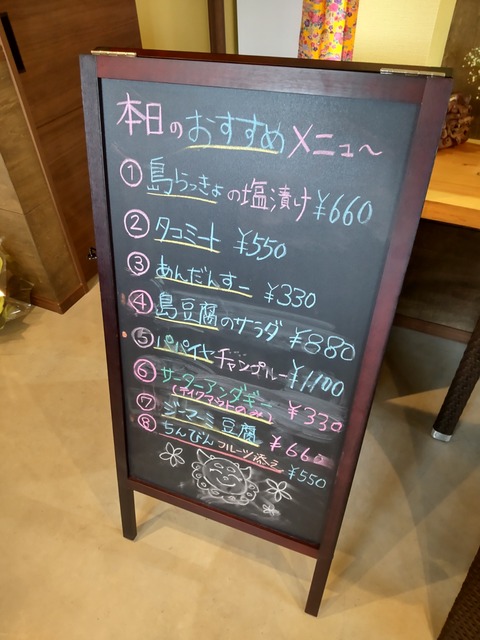 本日のおすすめメニュ〜
① 島らっきょの塩漬け ¥660
② タコミート ¥550
③ あんだんすー ¥330
④ 島豆腐のサラダ ¥880
⑤ パパイヤチャンプルー ¥1,100
⑥ サーターアンダギー ¥330
(テイクアウトのみ)
⑦ ジーマーミ豆腐 ¥660
⑧ ちんびん フルーツ添え ¥550